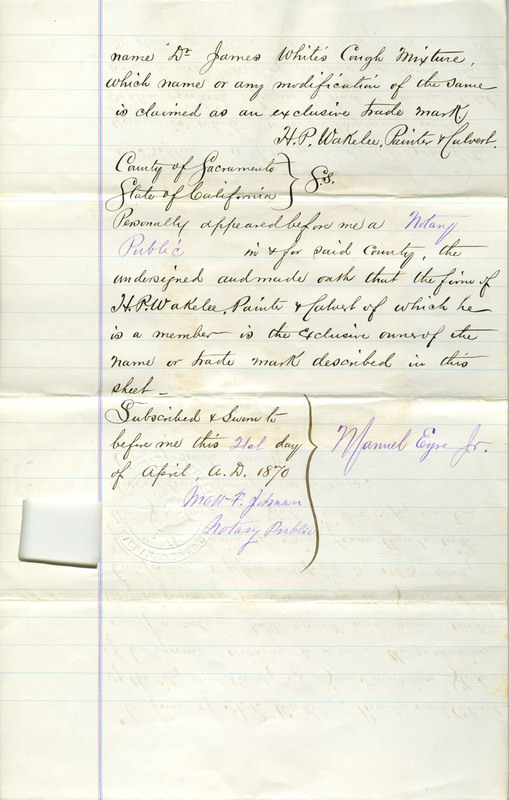 name Dr James White's Cough Mixture,
which name or any modification of the same
is claimed as an exclusive trade mark.
H. P. Wakelee, Painter & Calvert.
County of Sacramento
State of California } S.S.
Personally appeared before me a Notary
Public in & for said County, the
undersigned and made oath that the firm of
H. P. Wakelee, Painter & Calvert of which he
is a member is the exclusive owner of the
name or trade mark described in this
sheet—
Subscribed & Sworn to
before me this 21st day
of April, A.D. 1870
Manuel Eyre Jr.
F.
Notary Public